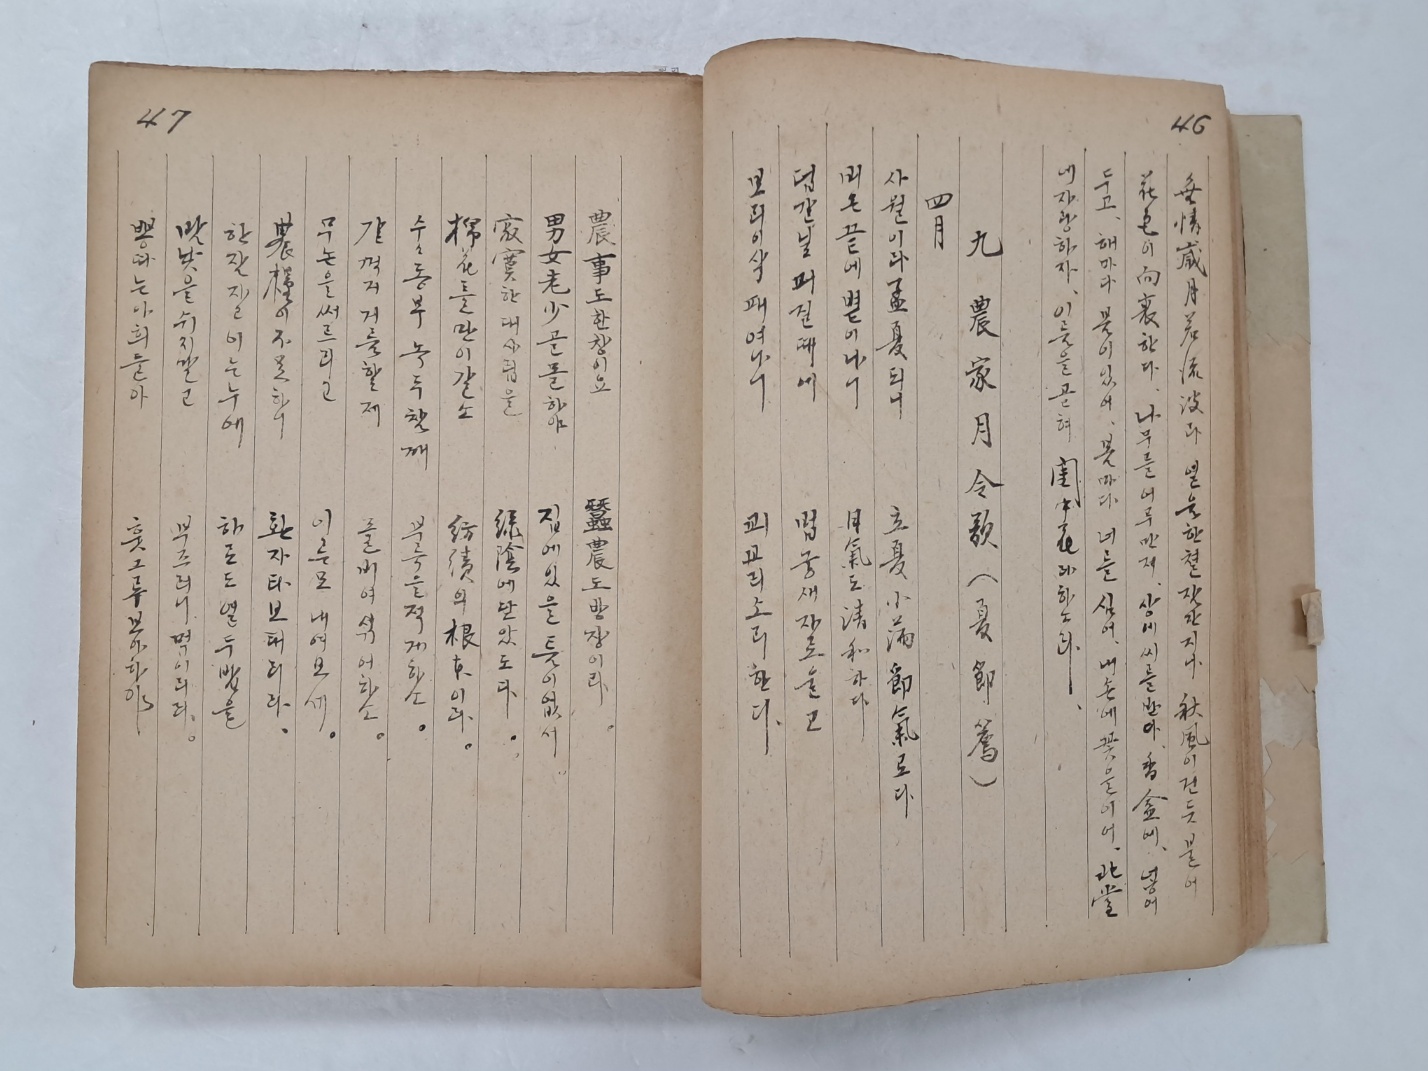 46
無情歲月若流波라 열울한철잠간지나 秋風이건듯불어
花色이向衰한다. 나무를어루만저, 상에씨를받아, 香盒에, 넣어
두고, 해마다 봄이있어, 봄마다 너를 심어, 내손에 꽃을이어, 北堂
에자랑하자, 이름을곧혀 閨中花라하노라.
九 農家月令歌 (夏節篇)
四月
사월이라孟夏되니 立夏小滿節氣로다
비온끝에볕이나니 日氣도淸和하다
덥갈닢퍼질때에 뻡궁새자로울고
보리이삭패여나니 꾀꼬리소리한다.
47
農事도한창이요 蠶農도방장이라.
男女老少골몰하야 집에있을틈이없서.
寂寞한대사립을 綠陰에닫았도다.
棉花를만이갈소 紡績의根本이라.
수수동부녹두참깨 부룩을적게하소.
갈꺽거거름할제 풀비여섞어하소.
무논을써으리고 이른모내여보세.
農糧이不足하니 환자타보태리라.
한잠자고이는누에 하로도열두밥을
밤낮을쉬지말고 부즈러니먹이리라.
뽕따는아희들아 훗그루보아하야